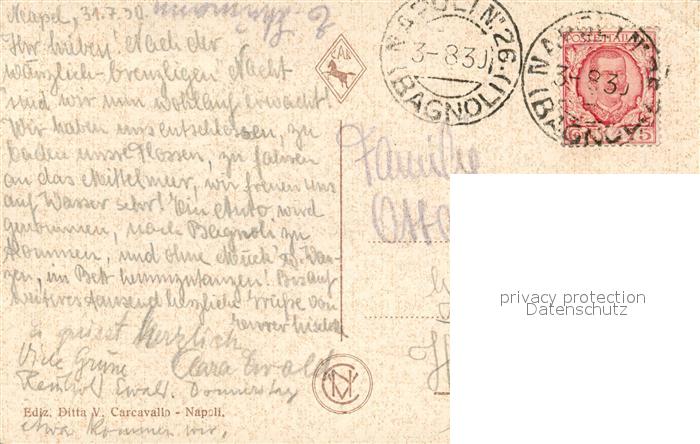 Neapel, 31.7.30.
Ihr Lieben! Nach der
wanzlich-brenzligen Nacht
sind wir nun wohlauf erwacht!
Wir haben uns entschlossen, zu
baden unsre Flossen, zu fahren
an das Mittelmeer, wir freuen uns
auf Wasser sehr! Ein Auto wird
genommen, nach Bagnoli zu
kommen, und ohne Mück' u. Wan-
zen, im Bett herumzutanzen! Bis auf
weiteres tausend herzliche Grüße von
Es grüsst herzlich
Viele Grüße Clara Ewald
Reinhold Ewald. Donnerstag
etwa kommen wir.
Ediz. Ditta V. Carcavallo - Napoli.
NAPOLI N° 26
3-8 30
(BAGNOLI)
NAPOLI N° 26
3-8 30
(BAGNOLI)
POSTE ITALIANE
Familie
Otto
privacy protection
Datenschutz